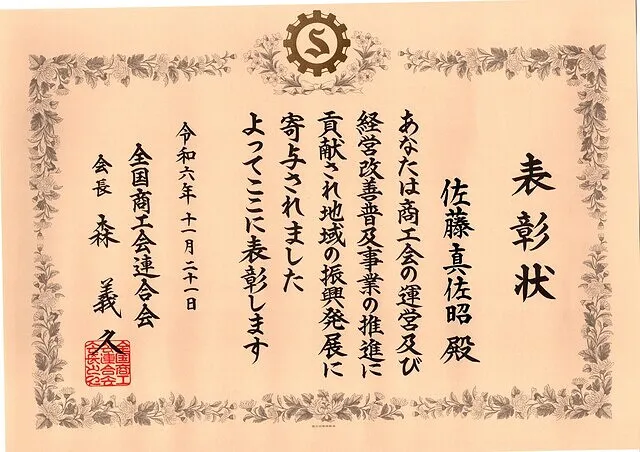 表彰状
佐藤真佐昭 殿
あなたは商工会の運営及び
経営改善普及事業の推進に
貢献され地域の振興発展に
寄与されました
よってここに表彰します
令和六年 十一月 二十一日
全国商工会連合会
会長 森 義久